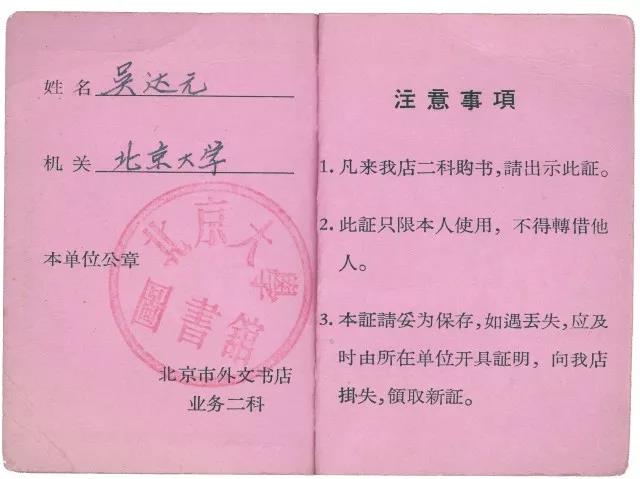 姓名 吴达元
机关 北京大学
本单位公章
北京大學
圖書舘
北京市外文书店
业务二科
注意事項
1. 凡来我店二科购书，請出示此証。
2. 此証只限本人使用，不得轉借他
人。
3. 本証請妥为保存，如遇丟失，应及
时由所在单位开具証明，向我店
掛失，領取新証。